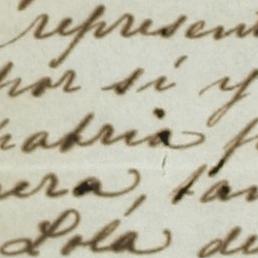 represent
por sí y
patria
nera, tan
Lola de